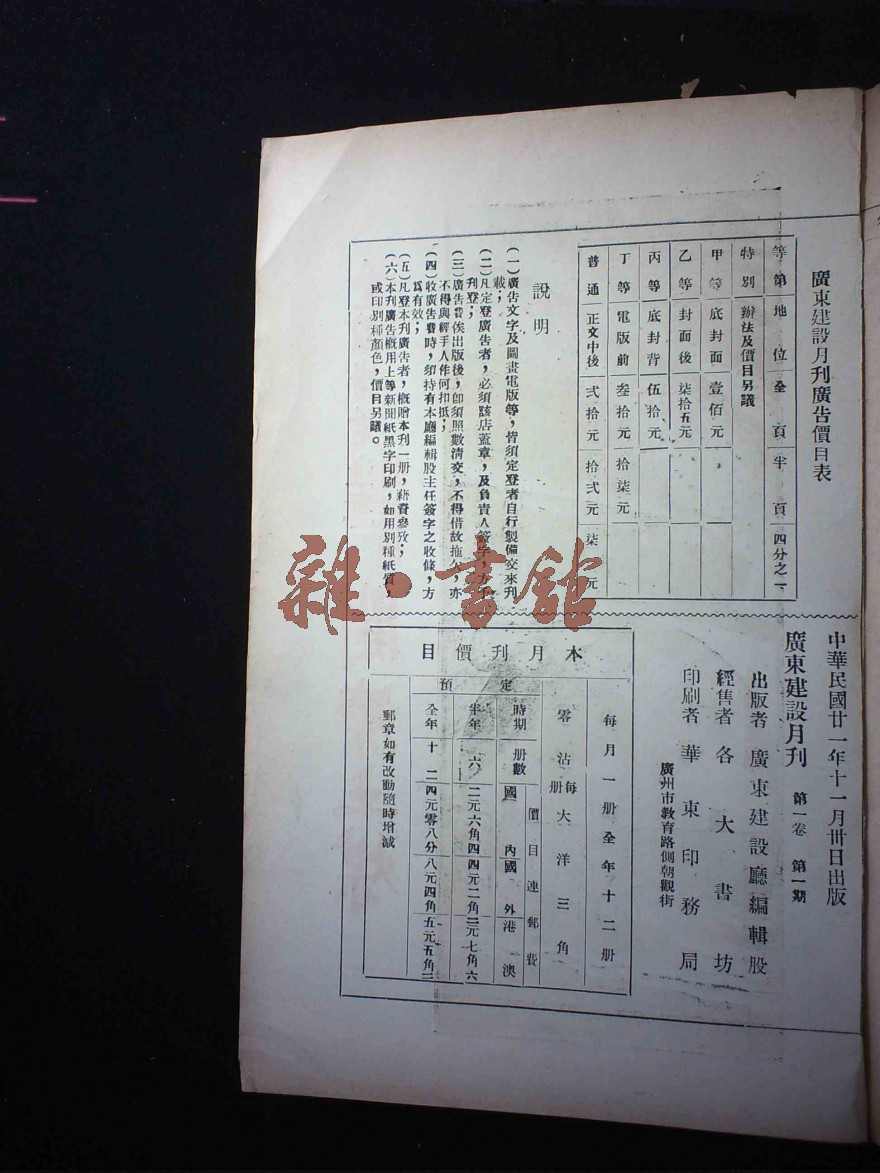 廣東建設月刊廣告價目表
等第 地位 全頁 半頁 四分之一
特別 辦法及價目另議
甲等 底封面 壹佰元
乙等 封面後 柒拾五元
丙等 底封背 伍拾元
丁等 電版前 叁拾元 拾柒元
普通 正文中後 弍拾元 拾弍元 柒元
說明
(一)廣告文字及圖畫電版等，皆須定登者自行製備交來刊
載；
(二)凡定登廣告者，必須該店蓋章，及負責人簽字，方予
刊登；
(三)廣告費俟出版後，卽須照數清交，不得借故拖欠，亦
不得與經手人作何扣抵；
(四)收廣告費時，須持有本廳編輯股主任簽字之收條，方
爲有效；
(五)凡登本刊廣告者，概贈本刊一册，藉資參攷；
(六)本刊廣告概用上等新聞紙黑字印刷，如用別種紙質，
或印別種顏色，價目另議。
中華民國廿一年十一月卅日出版
廣東建設月刊 第一卷 第一期
出版者 廣東建設廳編輯股
經售者 各大書坊
印刷者 華東印務局
廣州市教育路側朝觀街
本月刊價目
每月一册全年十二册
零沽 每册 大洋三角
預定
時期 册數 價目連郵費
國內 國外 港澳
半年 六 二元六角四 四元二角 二元七角六
全年 十二 四元零八分 八元四角 五元五角二
郵章如有改動隨時增減
雜·書館